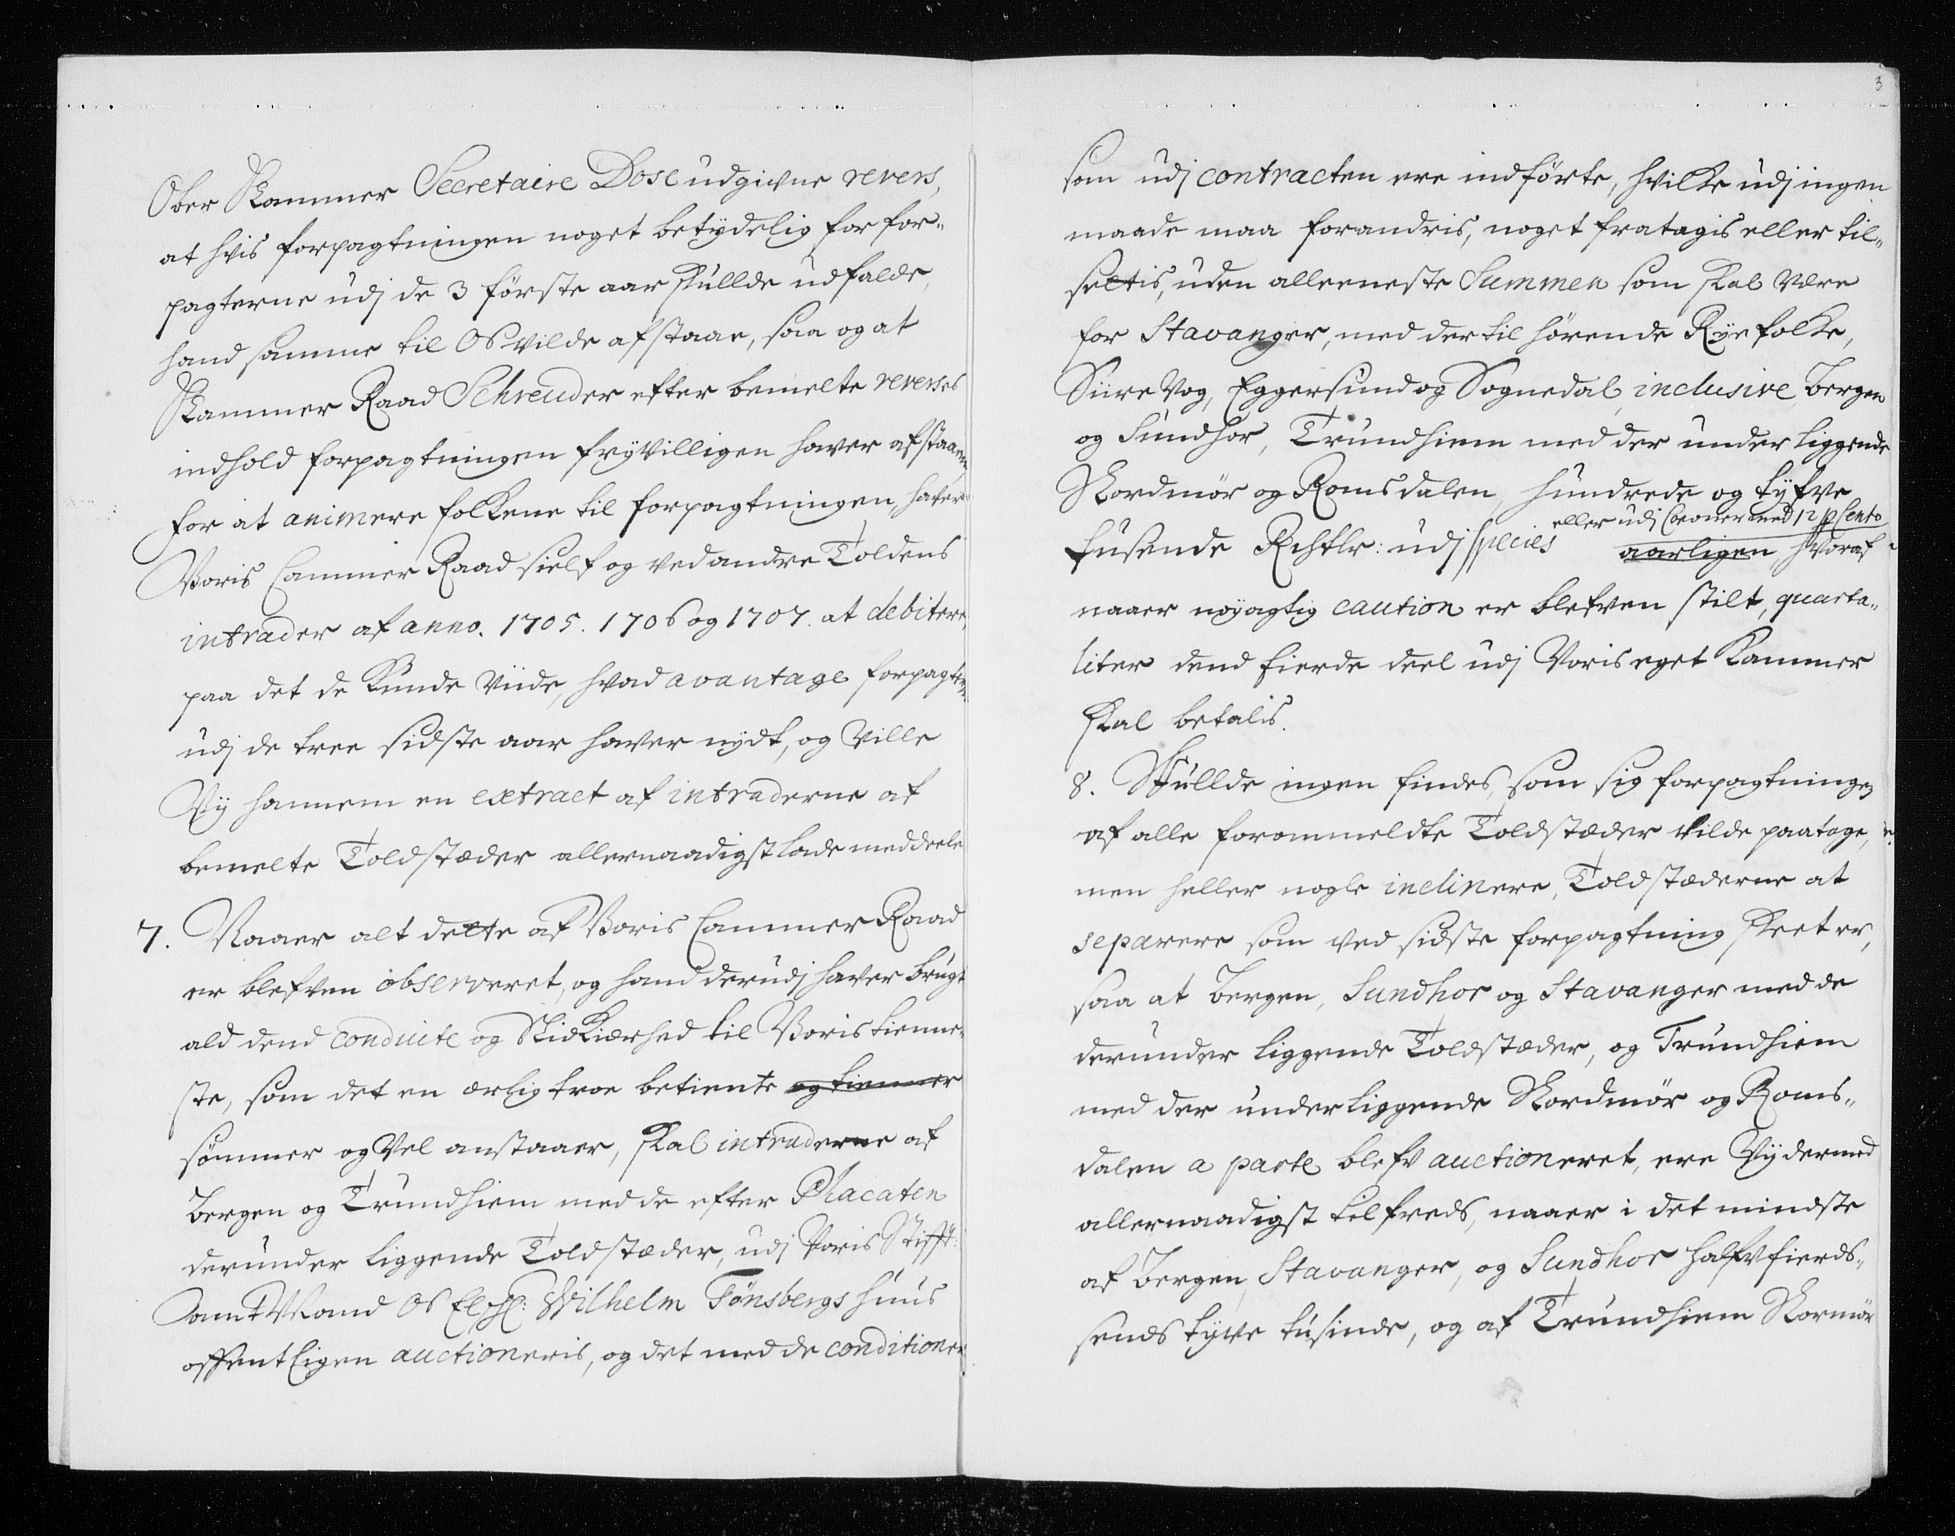 Ober Kammer Secretaire Dose udgivne revers,
at hvis forpagtningen noget betydelig for for-
pagterne udj de 3 förste aar skullde udfalde,
hand samme til Os vilde afstaae, saa og at
Kammer Raad Schreuder efter bemelte reverses
indhold forpagtningen frÿvilligen haver afstaaen
for at animere folkene til forpagtningen, haver
Voris Cammer Raad sielf og ved andre Toldens
intrader af anno. 1705. 1706 og 1707. at debitere,
paa det de kunde viide, hvad avantage forpagter
udj de tree sidste aar haver nÿdt, og Ville
Vÿ hannem en extract af intraderne af
bemelte Toldstæder allernaadigst lade meddeele
7. Naaer alt dette af Voris Cammer Raad
er blefven observeret, og hand derudj haver brugt
ald dend conduite og Nidkiærhed til Voris tienne-
ste, som det en ærlig troe betiente og tienner
sömmer og Vel anstaaer, skal intraderne af
Bergen og Trundhiem med de efter Placaten
derunder liggende Toldstæder, udj Voris Stifft:
amt Mand Os Elskl: Wilhelm Tönsbergs huus
offentligen auctioneris, og det med de conditioner
3
som udj contracten ere indförte, hvilke udj ingen
maade maa forandris, noget fratagis eller til-
settis, uden alleeneste Summen som skal være
for Stavanger, med der til hörende Rÿefolke,
Siirevog, Eggersund og Sognedal, inclusive Bergen
og Sundhor, Trundhiem med der under liggende
Nordmör og Romsdalen, hundrede og tÿfve
eller udj Croner med 12 p Cento
tusende Rchtlr: udj species aarligen hvoraf
naaer nöÿagtig caution er blefven stilt, quarta-
liter dend fierde deel udj Voris eget Kammer
skal betalis.
8. Skullde ingen findes, som sig forpagtningen
af alle forommeldte Toldstæder vilde paatage,
men heller nogle inclinere, Toldstæderne at
separere som ved sidste forpagtning skeet er,
saa at Bergen, Sundhor og Stavanger med de
derunder liggende Toldstæder, og Trundhiem
med der underliggende Nordmör og Roms-
dalen a parte blefv auctioneret, ere Vÿ dermed
allernaadigst tilfreds, naaer i det mindste
af Bergen, Stavanger, og Sundhor halfvfierds-
sends tÿve tusinde, og af Trundhiem Normör